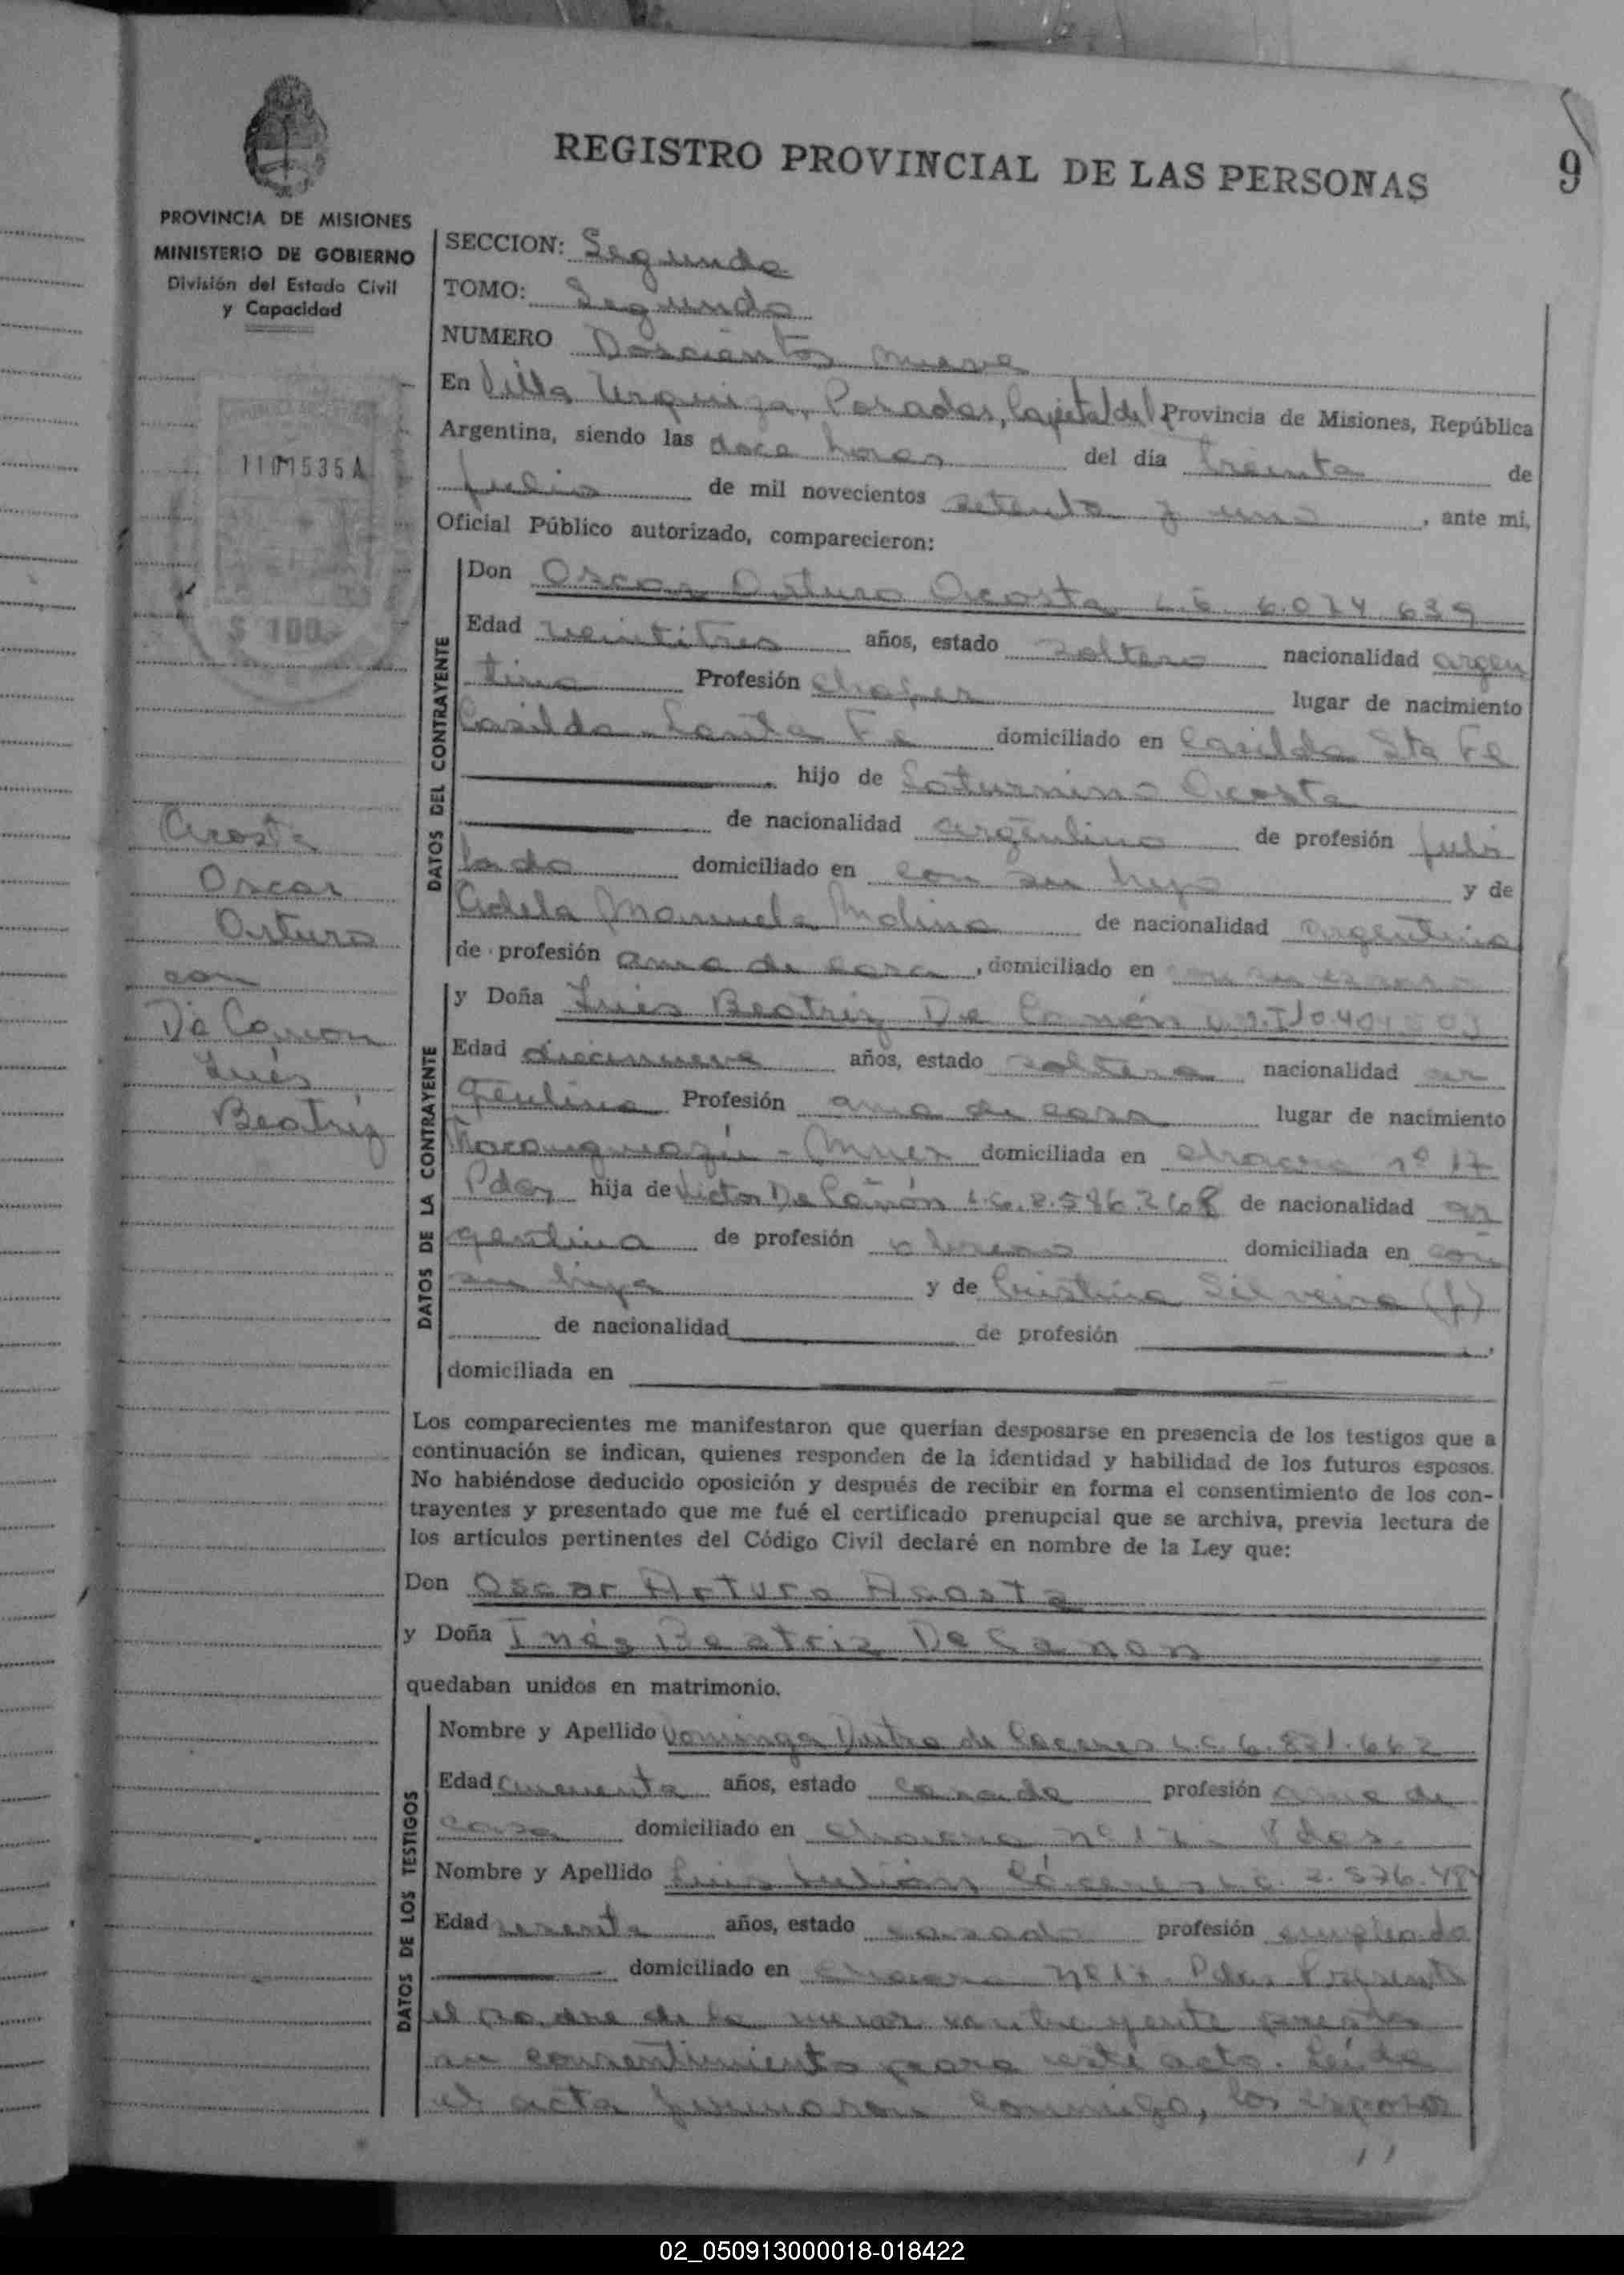 REGISTRO PROVINCIAL DE LAS PERSONAS
9
PROVINCIA DE MISIONES
MINISTERIO DE GOBIERNO
División del Estado Civil
y Capacidad
1101535A
$ 100.-
SECCION: Segunda
TOMO: Segundo
NUMERO Doscientos nueve
En Villa Urquiza, Posadas, Capital del Provincia de Misiones, República
Argentina, siendo las doce horas del día treinta de
julio de mil novecientos setenta y uno, ante mi,
Oficial Público autorizado, comparecieron:
DATOS DEL CONTRAYENTE
Don Oscar Arturo Acosta L.E. 6.074.639
Edad veintitres años, estado soltero nacionalidad argen
tino Profesión chofer lugar de nacimiento
Casilda - Santa Fe domiciliado en Casilda Sta Fe
hijo de Saturnino Acosta
de nacionalidad argentino de profesión jubi
lado domiciliado en con su hijo y de
Adela Manuela Molina de nacionalidad argentina
de profesión ama de casa, domiciliado en con su esposo
Acosta
Oscar
Arturo
con
De Cañon
Inés
Beatriz
DATOS DE LA CONTRAYENTE
y Doña Inés Beatriz De Cañón
Edad diecinueve años, estado soltera nacionalidad ar
gentina Profesión ama de casa lugar de nacimiento
domiciliada en chacra nº 17
Pdas hija de Victor De Cañón 2.586.268 de nacionalidad ar
gentina de profesión obrero domiciliada en con
su hija y de Cristina Silveira (f)
de nacionalidad de profesión
domiciliada en
Los comparecientes me manifestaron que querían desposarse en presencia de los testigos que a
continuación se indican, quienes responden de la identidad y habilidad de los futuros esposos.
No habiéndose deducido oposición y después de recibir en forma el consentimiento de los con-
trayentes y presentado que me fué el certificado prenupcial que se archiva, previa lectura de
los artículos pertinentes del Código Civil declaré en nombre de la Ley que:
Don Oscar Arturo Acosta
y Doña Inés Beatriz De Canon
quedaban unidos en matrimonio.
DATOS DE LOS TESTIGOS
Nombre y Apellido Dominga Dutra de Caceres L.C. 6.821.662
Edad cincuenta años, estado casada profesión ama de
casa domiciliado en chacra nº 17 - Pdas.
Nombre y Apellido Luis Julián Cáceres
Edad sesenta años, estado casado profesión empleado
domiciliado en chacra Nº 17 Pdas Presente
el padre de la menor contrayente presta
su consentimiento para este acto. Leída
el acta firmaron conmigo, los esposos
02_050913000018-018422